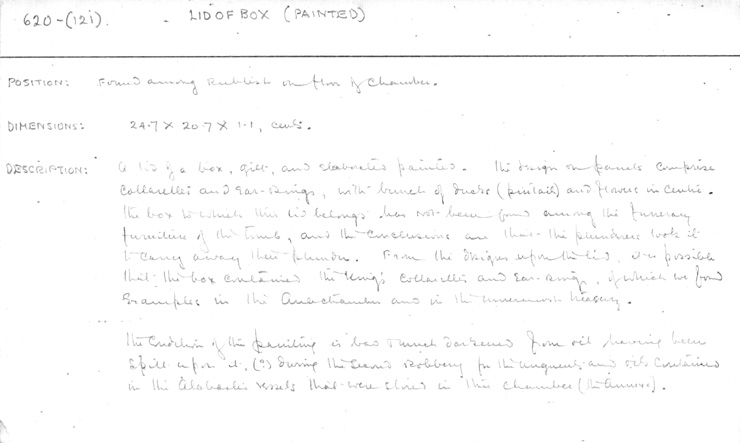 620-(121). LID OF BOX (PAINTED)
POSITION: Found among rubbish on floor of Chamber.
DIMENSIONS: 24.7 X 20.7 X 1.1, cents.
DESCRIPTION: A lid of a box, gilt, and elaborately painted. The design on panels comprise
collarettes and Ear-rings, with bunch of ducks (pintail) and flowers in centre.
The box to which this lid belongs has not been found among the funerary
furniture of the tomb, and the conclusions are that the plunderers took it
to carry away their plunder. From the designs upon the lid, it is possible
that the box contained the King's collarettes and Ear-rings, of which we found
examples in the Antechamber and in the innermost Treasury.
The condition of the painting is bad & much darkened from oil having been
spilt upon it, (?) during the second robbery for the unguents and oils contained
in the alabaster vessels that were stored in this chamber (the Annexe).